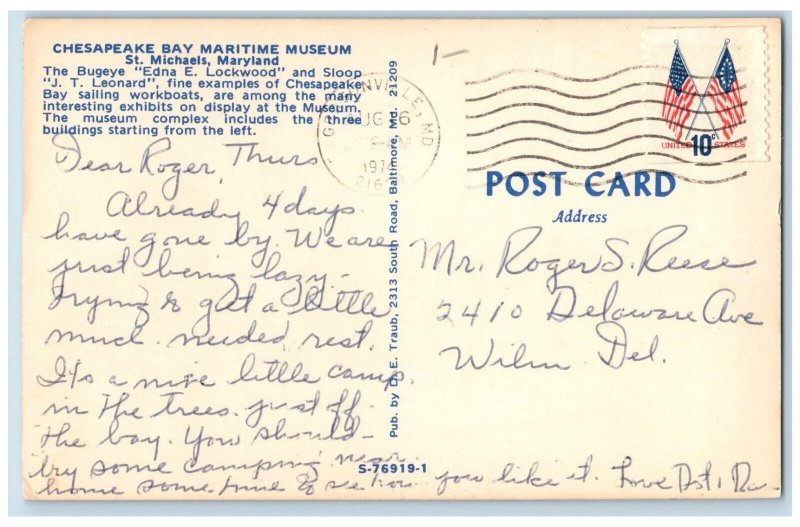 CHESAPEAKE BAY MARITIME MUSEUM
St. Michaels, Maryland
The Bugeye "Edna E. Lockwood" and Sloop
"J. T. Leonard", fine examples of Chesapeake
Bay sailing workboats, are among the many
interesting exhibits on display at the Museum.
The museum complex includes the three
buildings starting from the left.
Dear Roger, Thurs
Already 4 days
have gone by. We are
just being lazy -
trying to get a little
much needed rest.
It's a nice little camp
in the trees just off
the bay. You should
try some camping near
home some time to see how you like it. Love Dot &
Pub. by D. E. Traub, 2313 South Road, Baltimore, Md. 21209
S-76919-1
MD
1974
UNITED STATES
10c
POST CARD
Address
Mr. Roger S. Reese
2410 Delaware Ave
Wilm. Del.